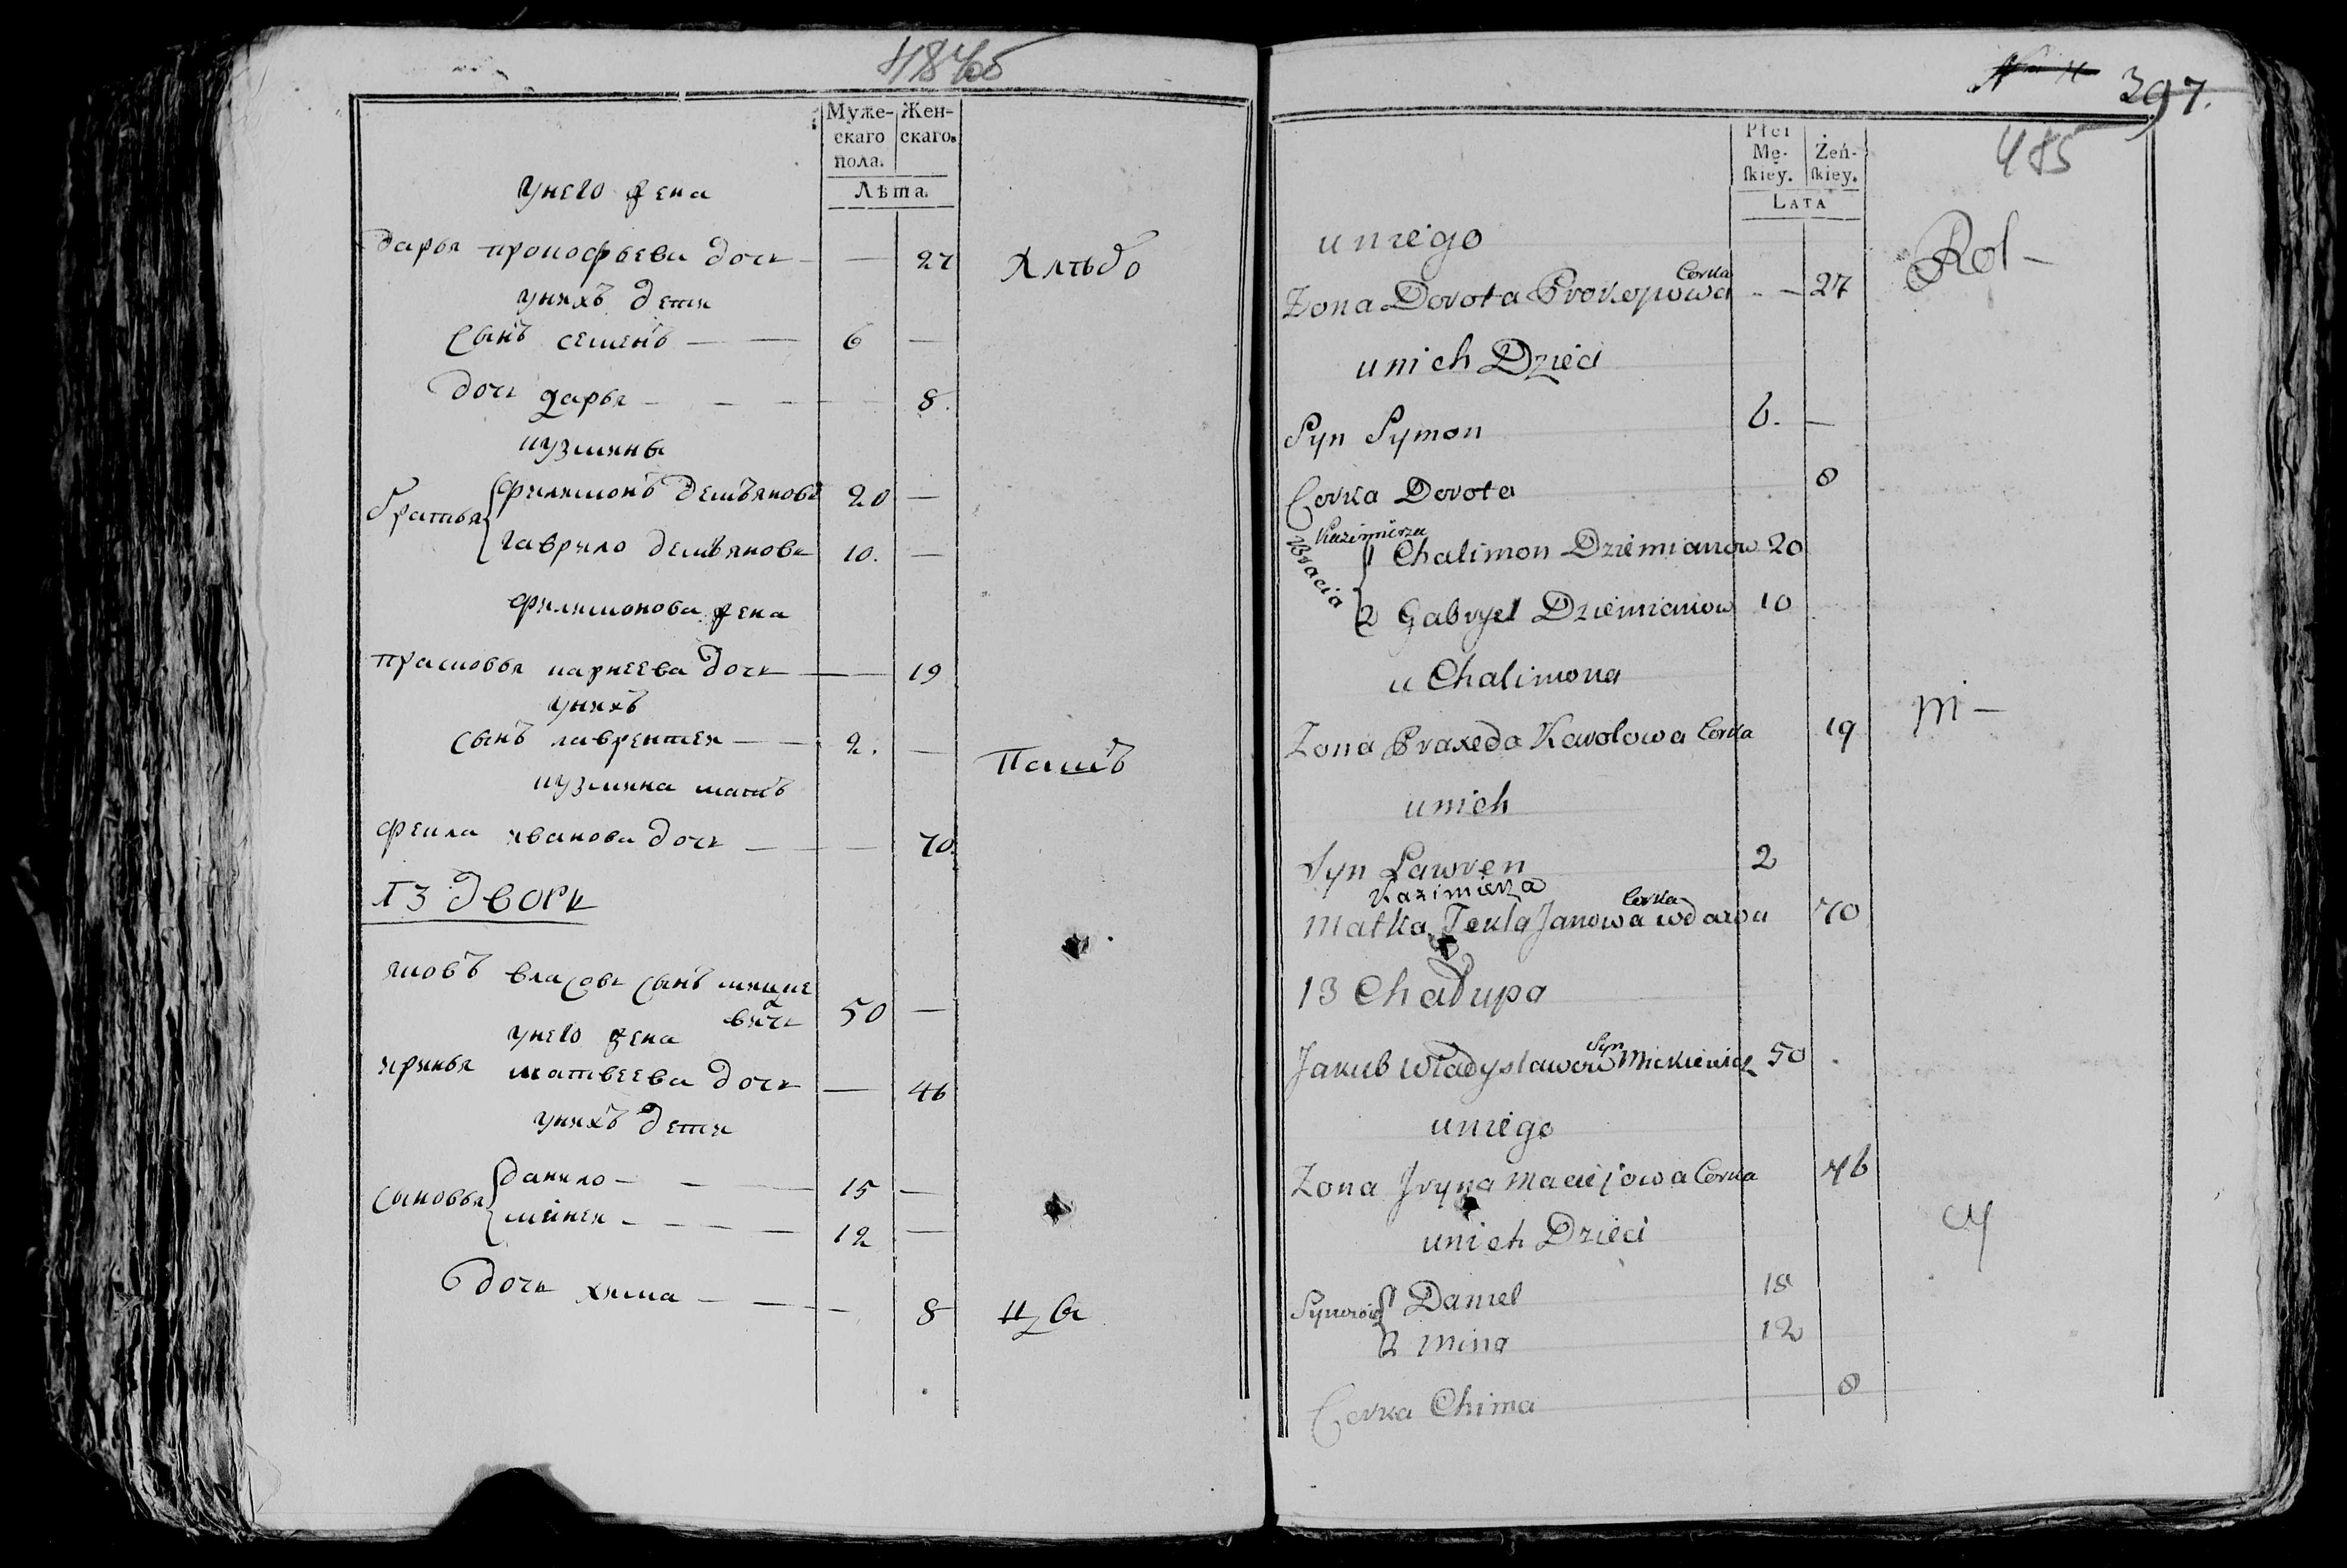 Муже-
скаго
пола.
Жен-
скаго.
Лѣта.
унего жена
дарья прокофьева дочь — — 27
Хлѣбо
унихъ дети
сынъ семенъ — — 6 —
дочь дарья — — — — 8.
кузмины
братья
филимонъ демъяновъ 20 —
гаврило демъяновъ 10. —
филимонова жена
прасковья карнеева дочь — — 19
унихъ
сынъ лаврентеи — — 2. —
Пашъ
кузмина мать
фекла иванова дочь — — — 70.
13 дворъ
яковъ власовъ сынъ мицке
вичь 50 —
унего жена
иринья матвеева дочь — 46
унихъ дети
сыновья
данило — — — 15 —
минеи — — — — 12 —
дочь хима — — — 8
397.
485
Płci
Mę-
ſkiey.
Żeń-
ſkiey.
LATA
uniego
Rol —
Corka
Zona Dorota Prokopowa — — 27
unich Dzieci
Syn Symon 6. —
Corka Dorota 8
Kazimierza
Bracia
1 Chalimon Dziemianow 20
2 Gabryel Dziemianow 10
u Chalimona
Zona Praxeda Karolowa Corka 19
m —
unich
Syn Lawren 2
Kazimierza
Corka
Matka Tekla Janowa wdowa 70
13 Chałupa
Syn
Jakub Władysławow Mickiewicz 50
uniego
Zona Jryna Maciejowa Corka 46
unich Dzieci
Synowie
1 Daniel 15
2 Mina 12
Corka Chima 8